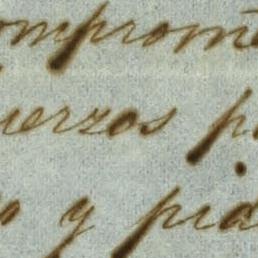 comprome
uerzos p
o y pia